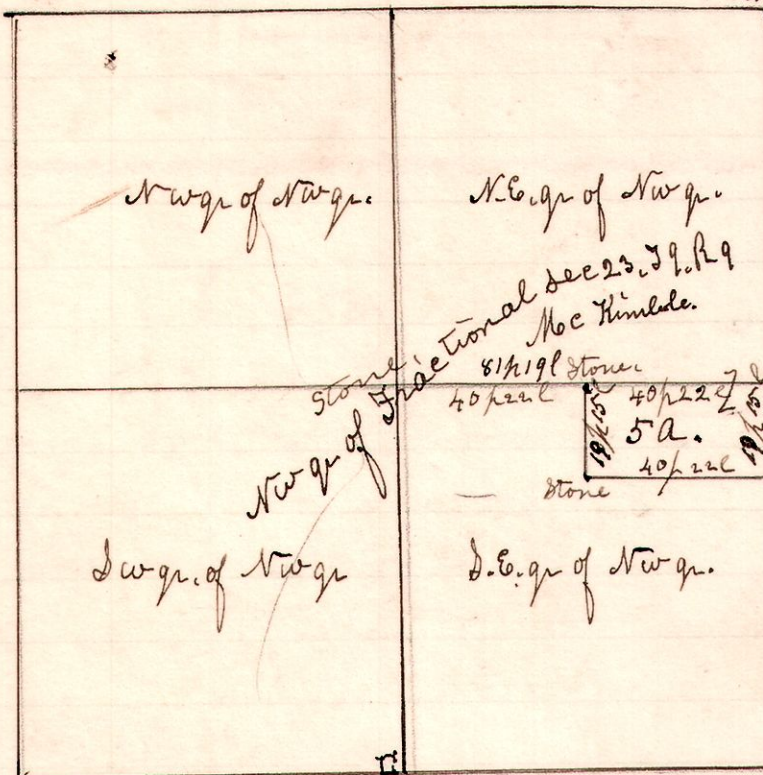 N w qr of N w qr.
N.E. qr of N w qr.
N w qr of Fractional Sec 23. T 9. R 9
Mc Kimble.
81p 19l Stone
Stone
40p 22l
40p 22l
19p 15l
5 A.
19p 15l
40p 22l
Stone
S w qr. of N w qr
S.E. qr of N w qr.